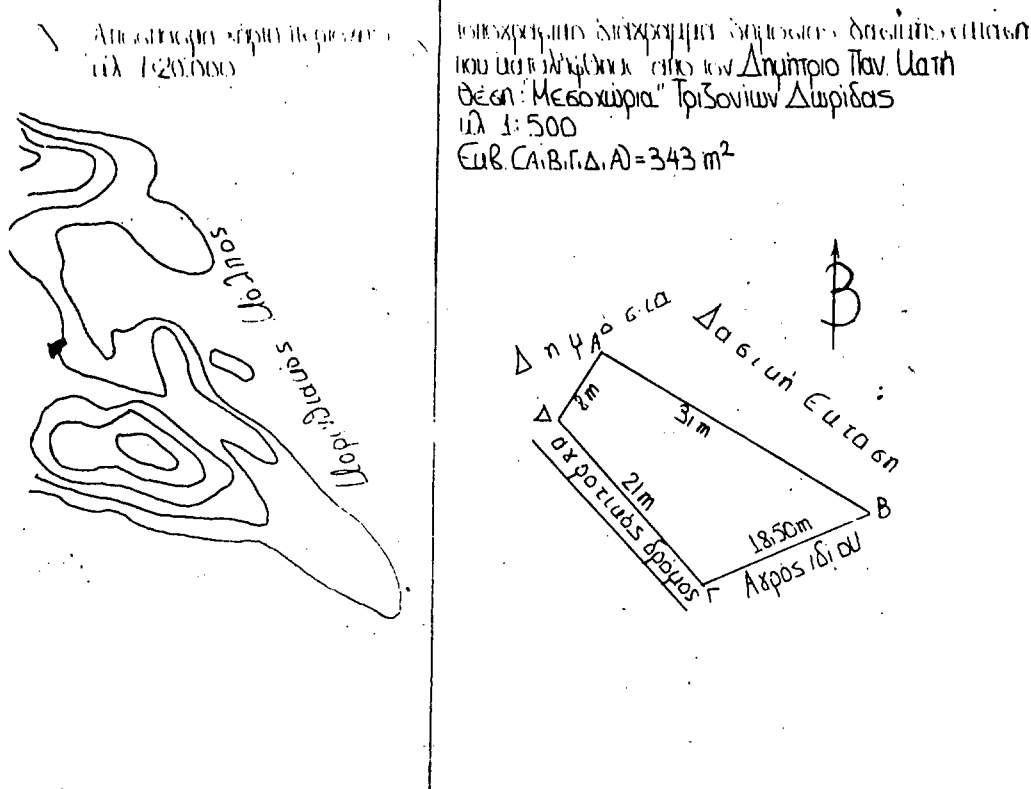 Απόσπασμα χάρτη περιοχής
κλ 1:20.000
Κορινθιακός Κόλπος
τοπογραφικο διάγραμμα δημοσιας δασικής εκτασης
που καταλήφθηκε απο τον Δημήτριο Παν. Κατή
Θέση: "Μεσοχώρια" Τριζονίων Δωρίδας
κλ 1:500
Εμβ. (Α,Β,Γ,Δ,Α) = 343 m²
Β
Δημόσια Δασική Εκταση
Α
8m
Δ
31m
21m
αγροτικός δρόμος
18,50m
Β
Γ
Αγρός ιδίου